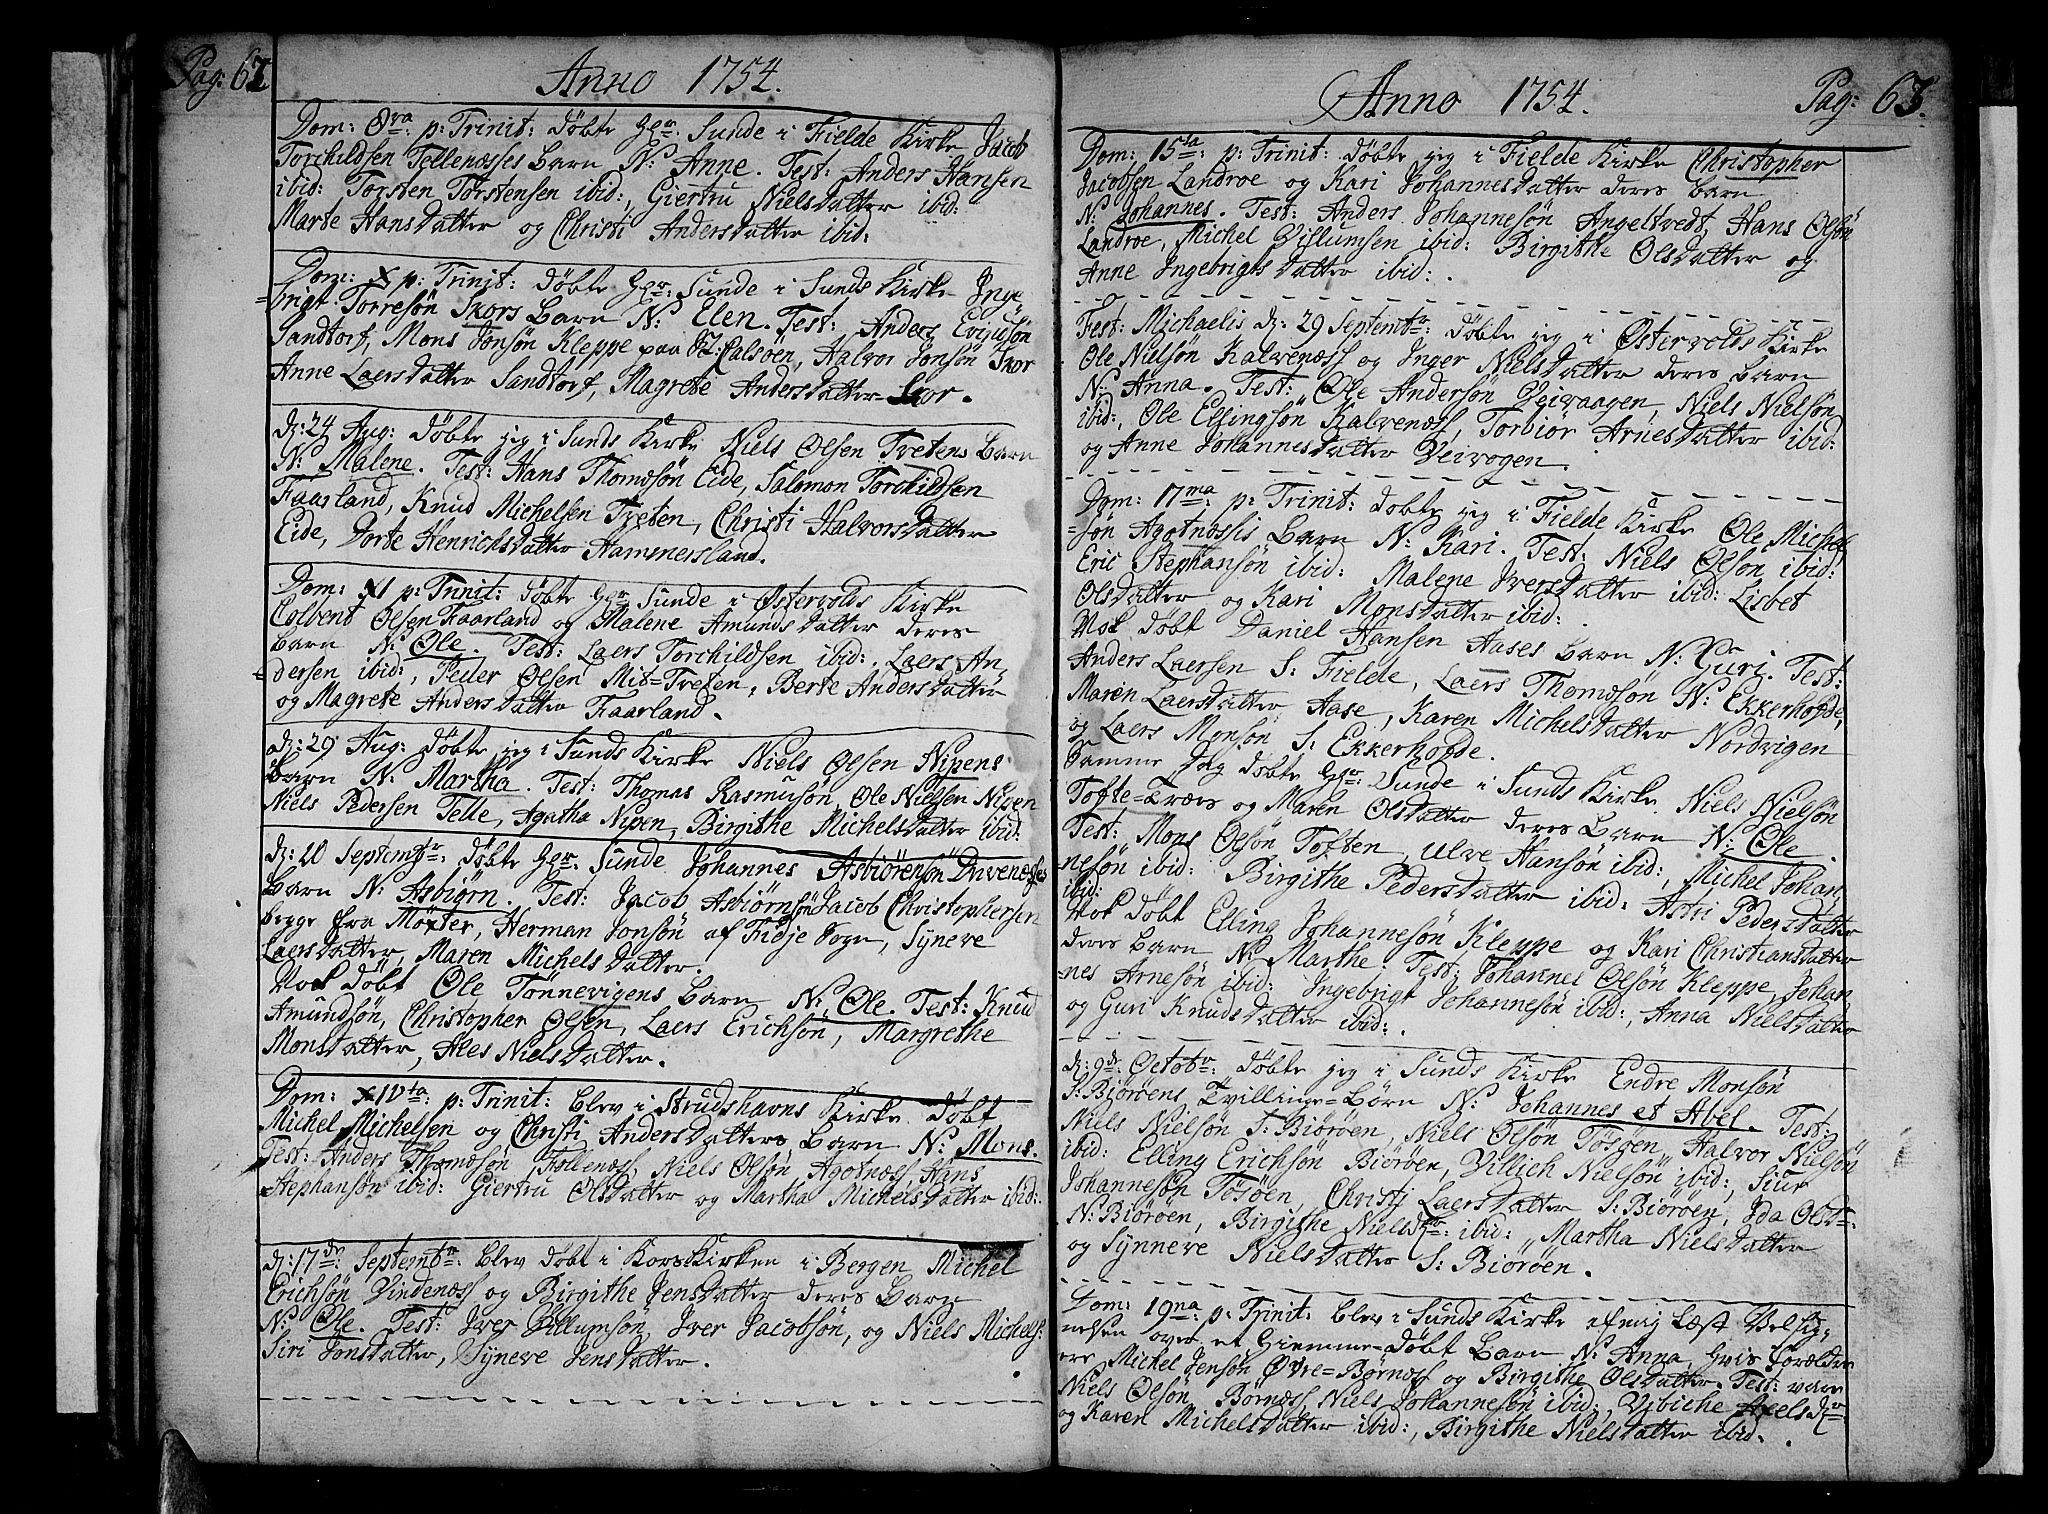 Pag: 62
Anno 1754.
Dom: 8va: p: Trinit: døbte Hgr: Sunde i Fielde Kirke Jacob
Torchildsen Tellenæsses Barn N: Anne. Test: Anders Hansen
ibid: Torsten Torstensen ibid:, Giertru Nielsdatter ibid:
Marte Hansdatter og Christi Andersdatter ibid:
Dom: X p: Trinit: døbte Hgr: Sunde i Sunds Kirke Inge
=brigt Torresøn Skors Barn N: Elen. Test: Anders
Sandtorf, Mons Jonsøn Kleppe paa Halvor Jonsøn Skor
Anne Laersdatter Sandtorf, Magrete Andersdatter Skor.
d: 24 Aug: døbte jeg i Sunds Kirke Niels Olsen Tvetens Barn
N: Malene. Test: Hans Thomæsøn Eide, Salomon Torchildsen
Faarland, Knud Michelsen Tveten, Christi Halvorsdatter
Eide, Dorte Henrichsdatter Hammersland.
Dom: XI p: Trinit: døbte Hgr: Sunde i Østervolds Kirke
Colbent Olsen Faarland og Malene Amundsdatter deres
Barn N: Ole. Test: Laers Torchildsen ibid:, Laers An
=dersen ibid:, Peder Olsen Mit=Tveten, Berte Andersdatter
og Magrete Andersdatter Faarland.
d: 29 Aug: døbte jeg i Sunds Kirke Niels Olsen Nipens
Barn N: Martha. Test: Thomas Rasmusøn, Ole Nielsen Nipen
Niels Pedersen Telle, Agatha Nipen, Birgithe Michelsdatter ibid:
Septembr: døbte Hgr: Sunde Johannes Asbiörensön Drivenæsses
Barn N: Asbiørn. Test: Jacob Asbiørnsøn Jacob Christophersen
begge fra Møxter, Herman Jonsøn af Fidje Sogn, Syneve
Laersdatter, Maren Michelsdatter.
Nok døbt Ole Tønnevigens Barn N: Ole. Test: Knud
Amundsøn, Christopher Olsen, Laers Erichsøn, Margrethe
Monsdatter, Ales Nielsdatter.
Dom: XIVta: p: Trinit: blev i Strudshavns Kirke døbt
Michel Michelsen og Christi Andersdatters Barn N: Mons.
Test: Anders Thomæsøn Follenæs, Niels Olsøn Agotnæss, Hans
Stephansøn ibid: Giertru Olsdatter og Martha Michelsdatter ibid:
d: 17de: Septembr: blev døbt i KorsKirken i Bergen Michel
Erichsøn Vindenæss og Birgithe Jensdatter deres Barn
N: Ole. Test: Iver Villumsøn, Iver Jacobsøn, og Niels Michels:
Siri Jonsdatter, Syneve Jensdatter.
Anno 1754.
Pag: 63.
Dom: 15ta: p: Trinit: døbte jeg i Fielde Kirke Christopher
Jacobsen Landroe og Kari Johannesdatter deres Barn
N: Johannes. Test: Anders Johannesøn Angeltvedt, Hans Olsøn
Landroe, Michel Villumsen ibid: Birgithe Olsdatter og
Anne Ingebrigtsdatter ibid:.
Fest: Michaelis d: 29 Septembr: døbte jeg i Østervolds Kirke
Ole Nielsøn Kalvenæss og Inger Nielsdatter deres Barn
N: Anna. Test: Ole Andersøn Veivaagen, Niels Nielsøn
ibid:, Ole Ellingsøn Kalvenæss, Torbior Arnesdatter ibid:
og Anne Johannesdatter Veivogen.
Dom: 17ma: p: Trinit: døbte jeg i Fielde Kirke Ole Michel
=søn Agotnæssis Barn N: Kari. Test: Niels Olsøn ibid:
Eric Stephansøn ibid: Malene Iversdatter ibid: Lisbet
Olsdatter og Kari Monsdatter ibid:.
Nok døbt Daniel Hansen Aases Barn N: Guri. Test:
Anders Laersen S: Fielde, Laers Thomæsøn N: Ekkerhofde,
Maren Laersdatter Aase, Karen Michelsdatter Nordvigen
og Laers Monsøn S: Ekkerhofde.
Samme Dag døbte Hgr: Sunde i Sunds Kirke Niels Nielsøn
Tofte=Træes og Maren Olsdatter deres Barn N: Ole.
Test: Mons Olsøn Toften, Ulve Hansøn ibid:, Michel Johan
=nesøn ibid: Birgithe Pedersdatter ibid: Astri Pedersdatter
ibid:
Nok døbt Elling Johannesøn Kleppe og Kari Christiansdatter
deres Barn N: Marthe. Test: Johannes Olsøn Kleppe, Johan
=nes Arnesøn ibid: Ingebrigt Johannesøn ibid:, Anna Nielsdatter
og Guri Knudsdatter ibid:.
d: 9de: Octobr: døbte jeg i Sunds Kirke Endre Monsøn
S: Biörøens Tvillinge=Børn N: Johannes et Abel. Test:
Niels Nielsøn S: Biöröen, Niels Olsøn Tösöen, Halvor Nielsøn
ibid: Elling Erichsøn Biöröen, Villich Nielsøn ibid:, Siur
Johannesøn Tösöen, Christj Laersdatter S: Biöröen, Ida Olsd:
N: Biöröen, Birgithe Nielsdr: ibid:, Martha Nielsdatter
og Synneve Nielsdatter S: Biöröen.
Dom: 19na p: Trinit: blev i Sunds Kirke af mig læst Velsig-
nelsen over et Hiemme=døbt Barn N: Anna, hvis foreldre
ere Michel Jensøn Øvre=Børnæss og Birgithe Olsdatter. Test: vare
Niels Olsøn Børnæss, Niels Johannesøn ibid:, Vibiche Axelsdr:
og Karen Michelsdatter ibid:, Birgithe Nielsdatter ibid:.